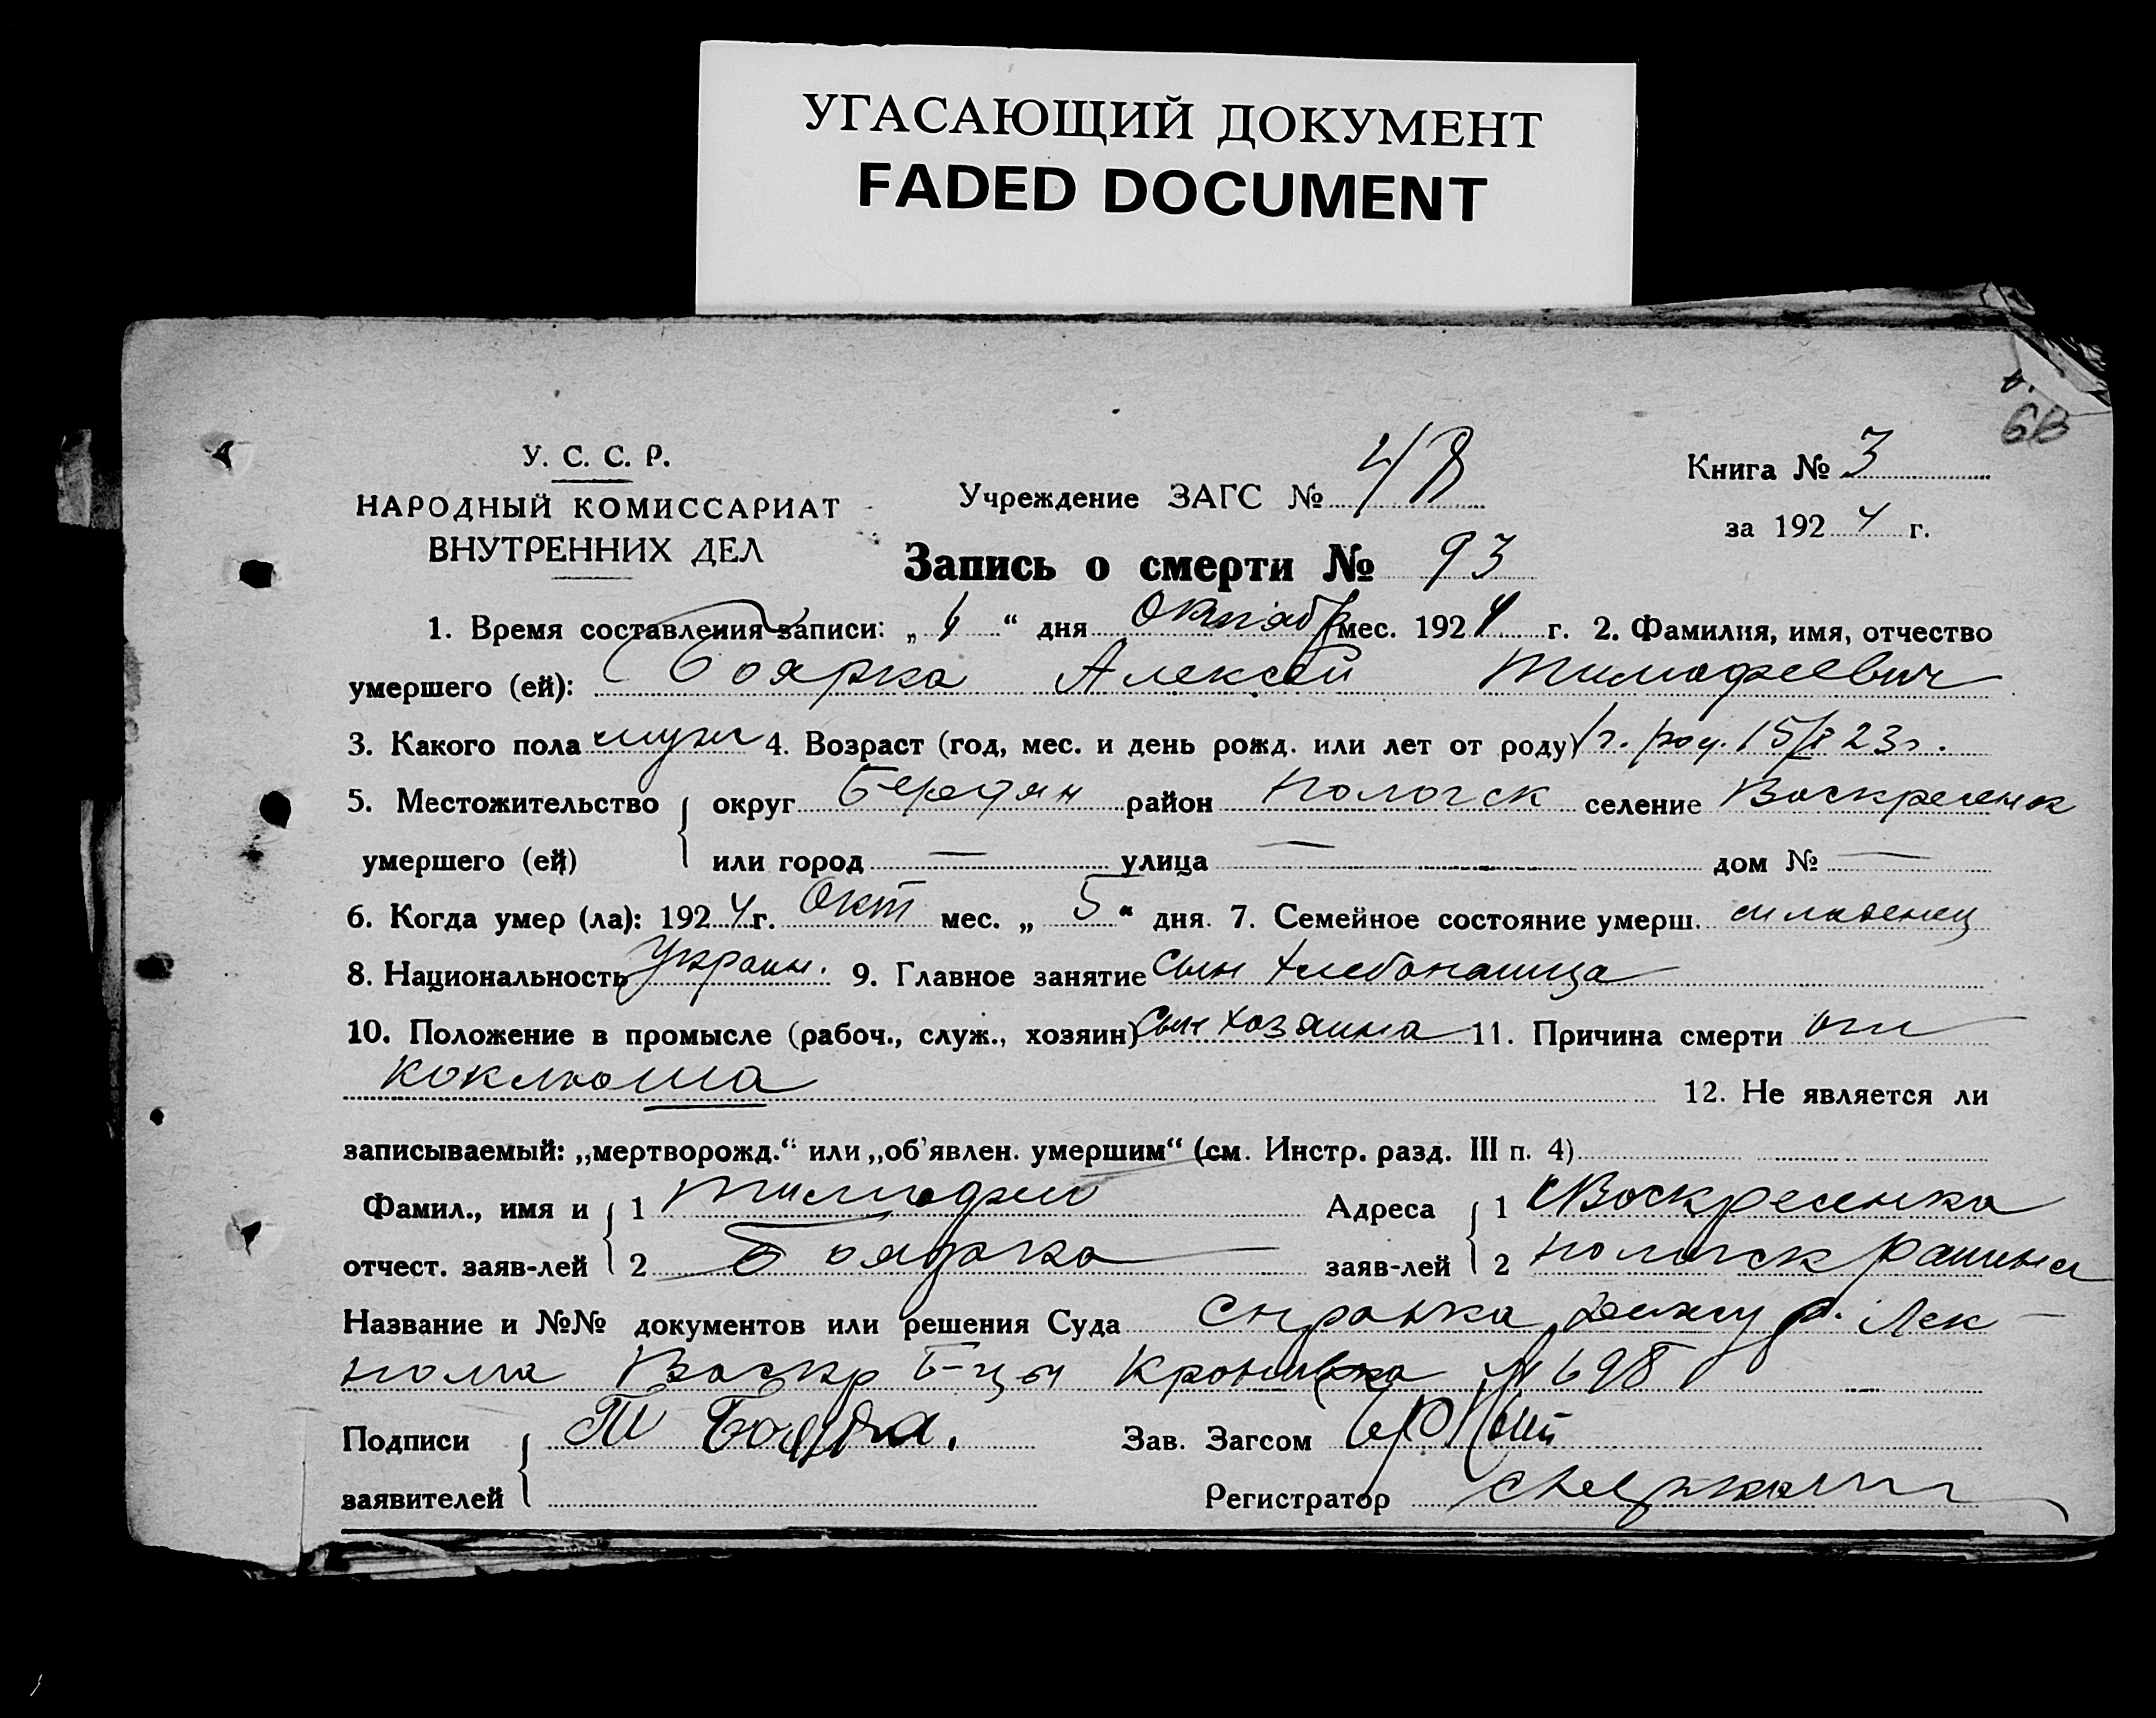 УГАСАЮЩИЙ ДОКУМЕНТ
FADED DOCUMENT
6В
У. С. С. Р.
НАРОДНЫЙ КОМИССАРИАТ
ВНУТРЕННИХ ДЕЛ
Учреждение ЗАГС № 48
Книга № 3
за 1924 г.
Запись о смерти № 93
1. Время составления записи: „6“ дня Октябр мес. 1924 г. 2. Фамилия, имя, отчество
умершего (ей): Боярка Алексей Тимофеевич
3. Какого пола муж 4. Возраст (год, мес. и день рожд. или лет от роду) 1 г. род. 15/X 23 г.
5. Местожительство округ Бердян район Пологск селение Воскресенк
умершего (ей) или город — улица — дом № —
6. Когда умер (ла): 1924 г. Окт мес. „5“ дня. 7. Семейное состояние умерш. младенец
8. Национальность Украин. 9. Главное занятие сын хлебопашца
10. Положение в промысле (рабоч., служ., хозяин) Сын хозяина 11. Причина смерти от
коклюша 12. Не является ли
записываемый: „мертворожд.“ или „об'явлен. умершим“ (см. Инстр. разд. III п. 4)
Фамил., имя и 1 Тимофей Адреса 1 с Воскресенка
отчест. заяв-лей 2 Боярка заяв-лей 2 Пологск района
Название и №№ документов или решения Суда Справка Лек
пома Воскр Б-цы № 698
Подписи Т Боярка. Зав. Загсом
заявителей Регистратор